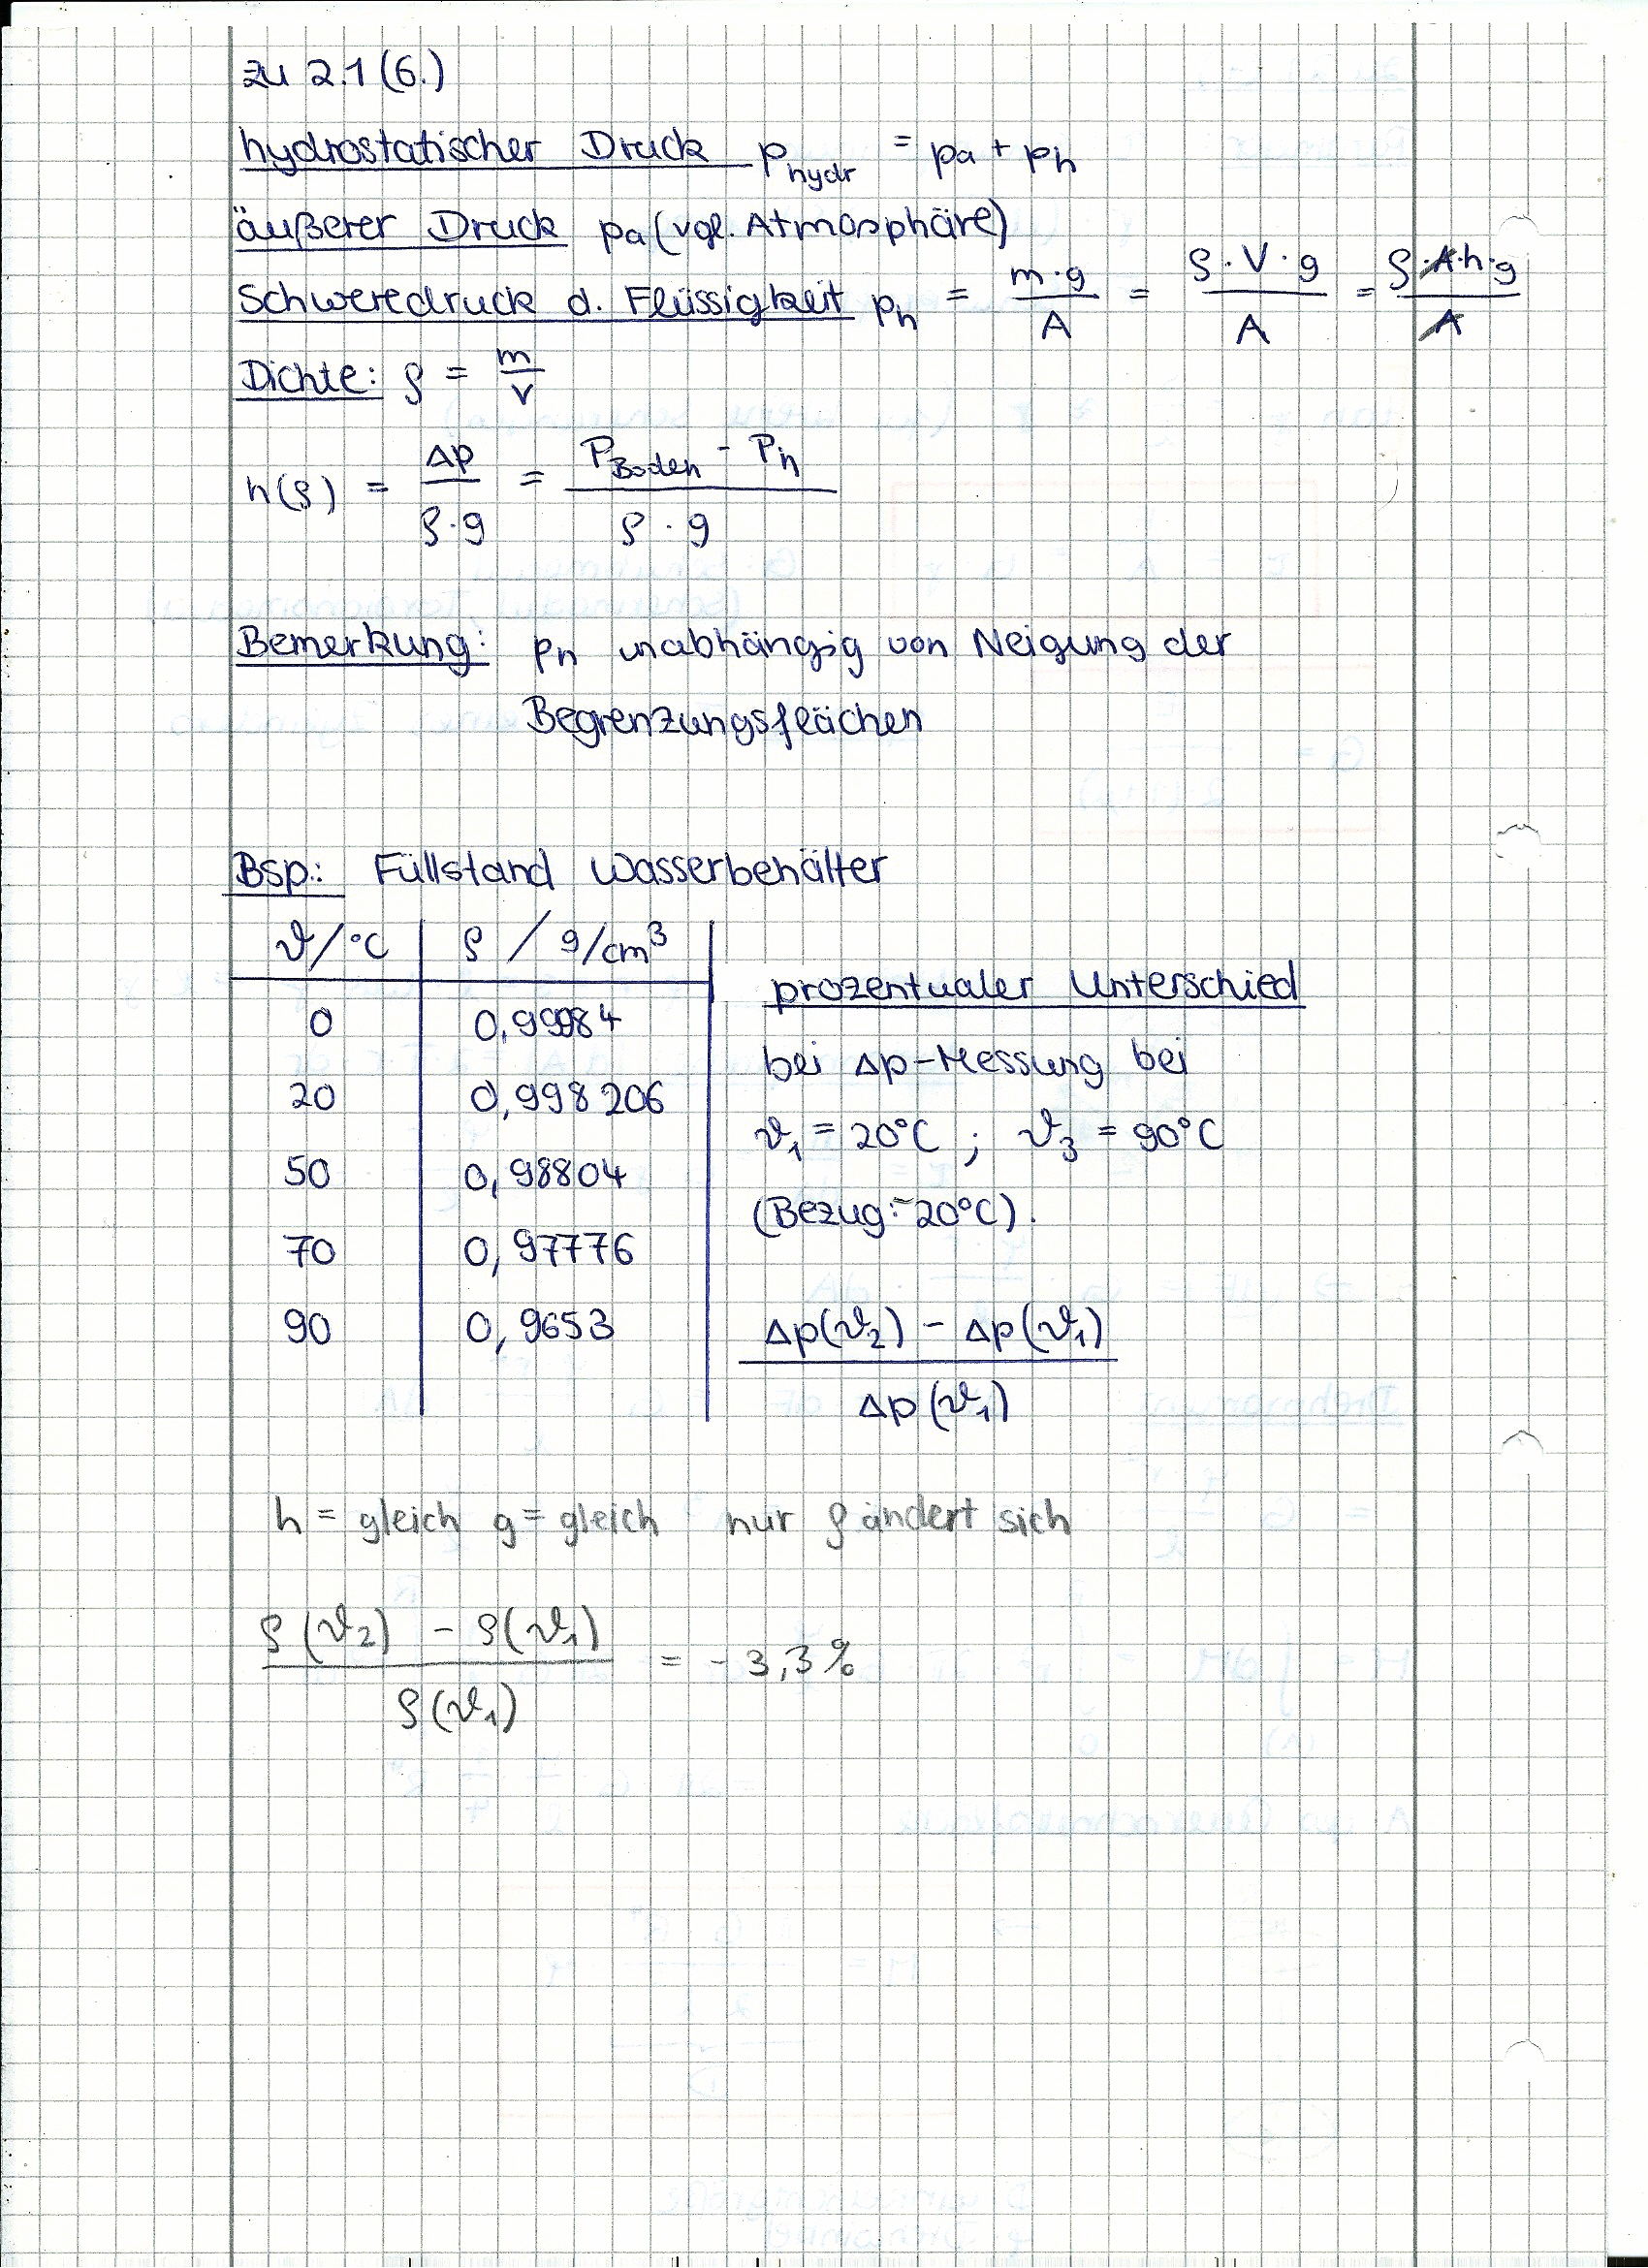 zu 2.1 (6.)
hydrostatischer Druck p_hydr = pa + ph
äußerer Druck pa (vgl. Atmosphäre)
Schweredruck d. Flüssigkeit ph = m·g / A = ρ·V·g / A = ρ·A·h·g / A
Dichte: ρ = m / V
h(ρ) = Δp / ρ·g = P_Boden - P_h / ρ·g
Bemerkung: ph unabhängig von Neigung der
Begrenzungsflächen
Bsp.: Füllstand Wasserbehälter
ϑ/°C ρ / g/cm³
0 0,99984
20 0,998206
50 0,98804
70 0,97776
90 0,9653
prozentualer Unterschied
bei Δp-Messung bei
ϑ₁ = 20°C ; ϑ₃ = 90°C
(Bezug: 20°C).
Δp(ϑ₂) - Δp(ϑ₁) / Δp(ϑ₁)
h = gleich g = gleich nur ρ ändert sich
ρ(ϑ₂) - ρ(ϑ₁) / ρ(ϑ₁) = - 3,3 %